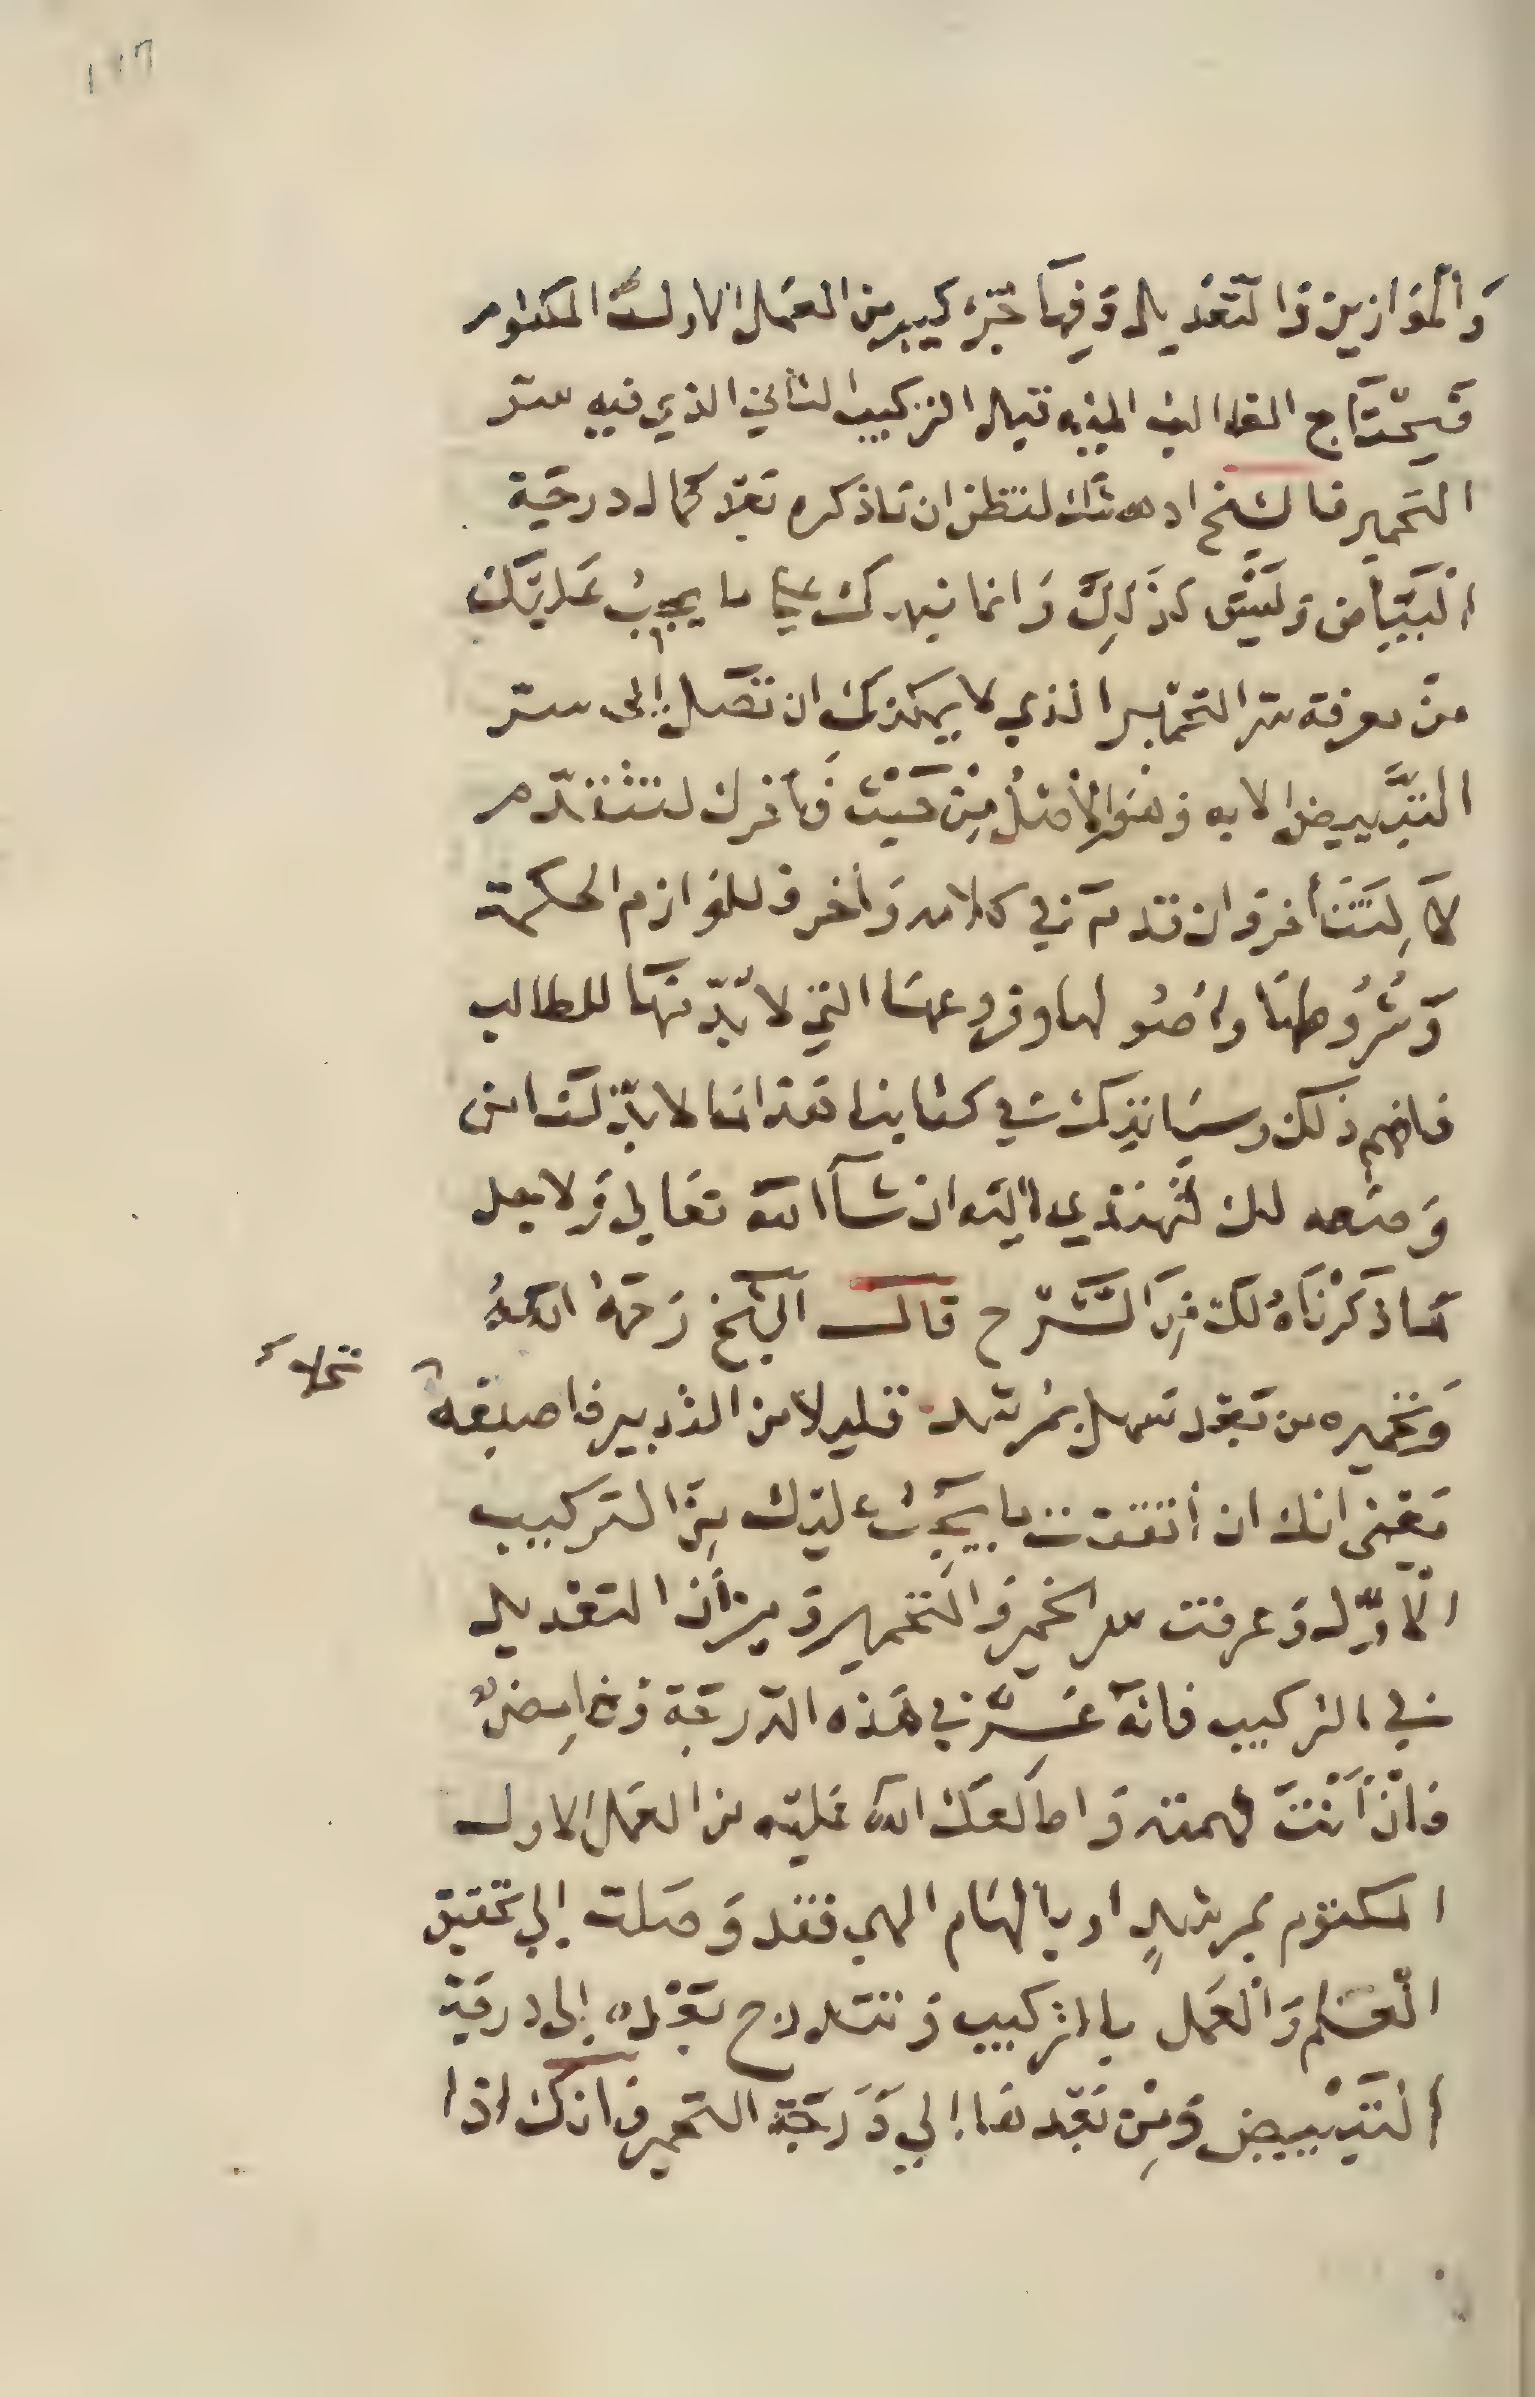 ١١٦
وَالْمَوَازين وَالتَّعْديل وَفِيهَا جُزء كبير من العَمَل الاول المكتوم
فيحْتَاج الى التركيب الثاني الذي فيه سر
التحمير فالشيخ ادهشك لتظن ان مَا ذكره بَعْد كمال درجة
البَيَاض وَليْسَ كذَلِكَ وَانما نبهك على ما يجبُ عَليْكَ
من معرفة سر التخمير الذي لا يمكنك ان تصل إلى سر
التبييض الا به وَهُوَ الأَصْلُ مِنْ حَيْث فأخرك لتتقدّم
لاَ لِتَتَأخر وان تقدم في كلامه وَأخر فللوازم الحكمة
وَشُرُوطهَا وَاصُولها وفروعهَا التي لا بُدّ منهَا للطالب
فافهم ذلك وسيَاتيك في كتابنا هَذا مَا لا بدّ لك من
وَضعه لك لتهْتَدي اليه ان شآ الله تعَالي وَلاجل
هَذا ذكَرْنَاهُ لكَ في الشَّرْح قال الشيخ رَحمهُ اللهُ
وَتخميره من بَعْد سَهل بمُرشد قليلا من التدبير فاصبغه نحلاً
يَعْني انك ان أتقنت ما يَجِبُ عليْك من التركيب
الأوَّل وَعرفت سر الخمير وَالتخمير وَميزَان التعْديل
في التركيب فانهُ عَسِرٌ في هَذه الدّرجَة وَغَامِضٌ
فانْ أَنْتَ فهمته وَاطلعَك الله عَليْه من العَمَل الاول
المكتوم بمرشدٍ او بالهَام الهي فقد وَصَلت إلي تحقيق
العلم وَالعَمل بالتركيب وَتتدرج بَعْده إلى درجَة
التَبْييض وَمِنْ بَعْدهَا إلي دَرَجَة التحمير فانك اذا